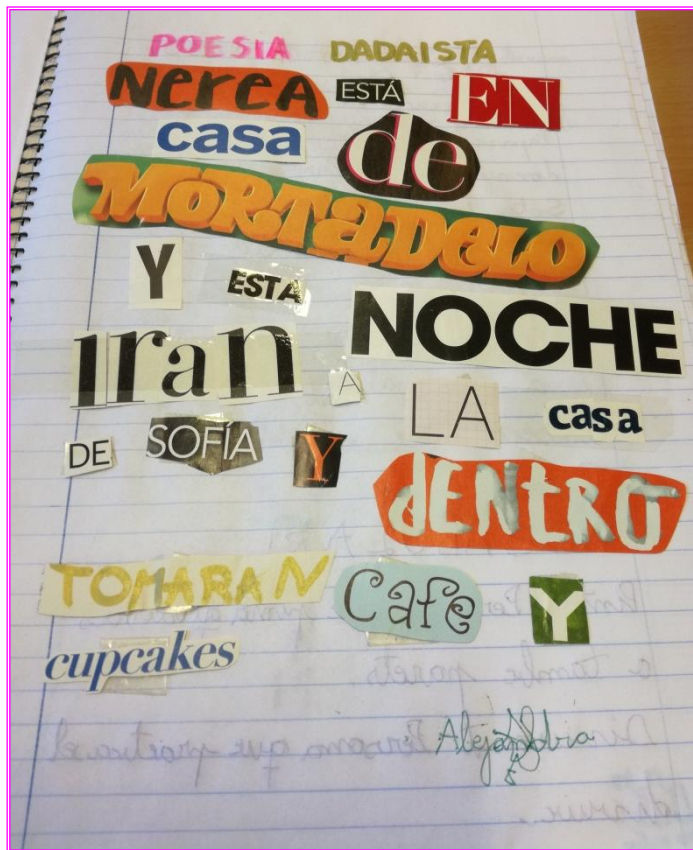 POESIA DADAISTA
NereA ESTÁ EN
casa de
MORTADELO
Y ESTA NOCHE
ıran A LA casa
DE SOFÍA Y dENtRO
TOMARAN Cafe Y
cupcakes